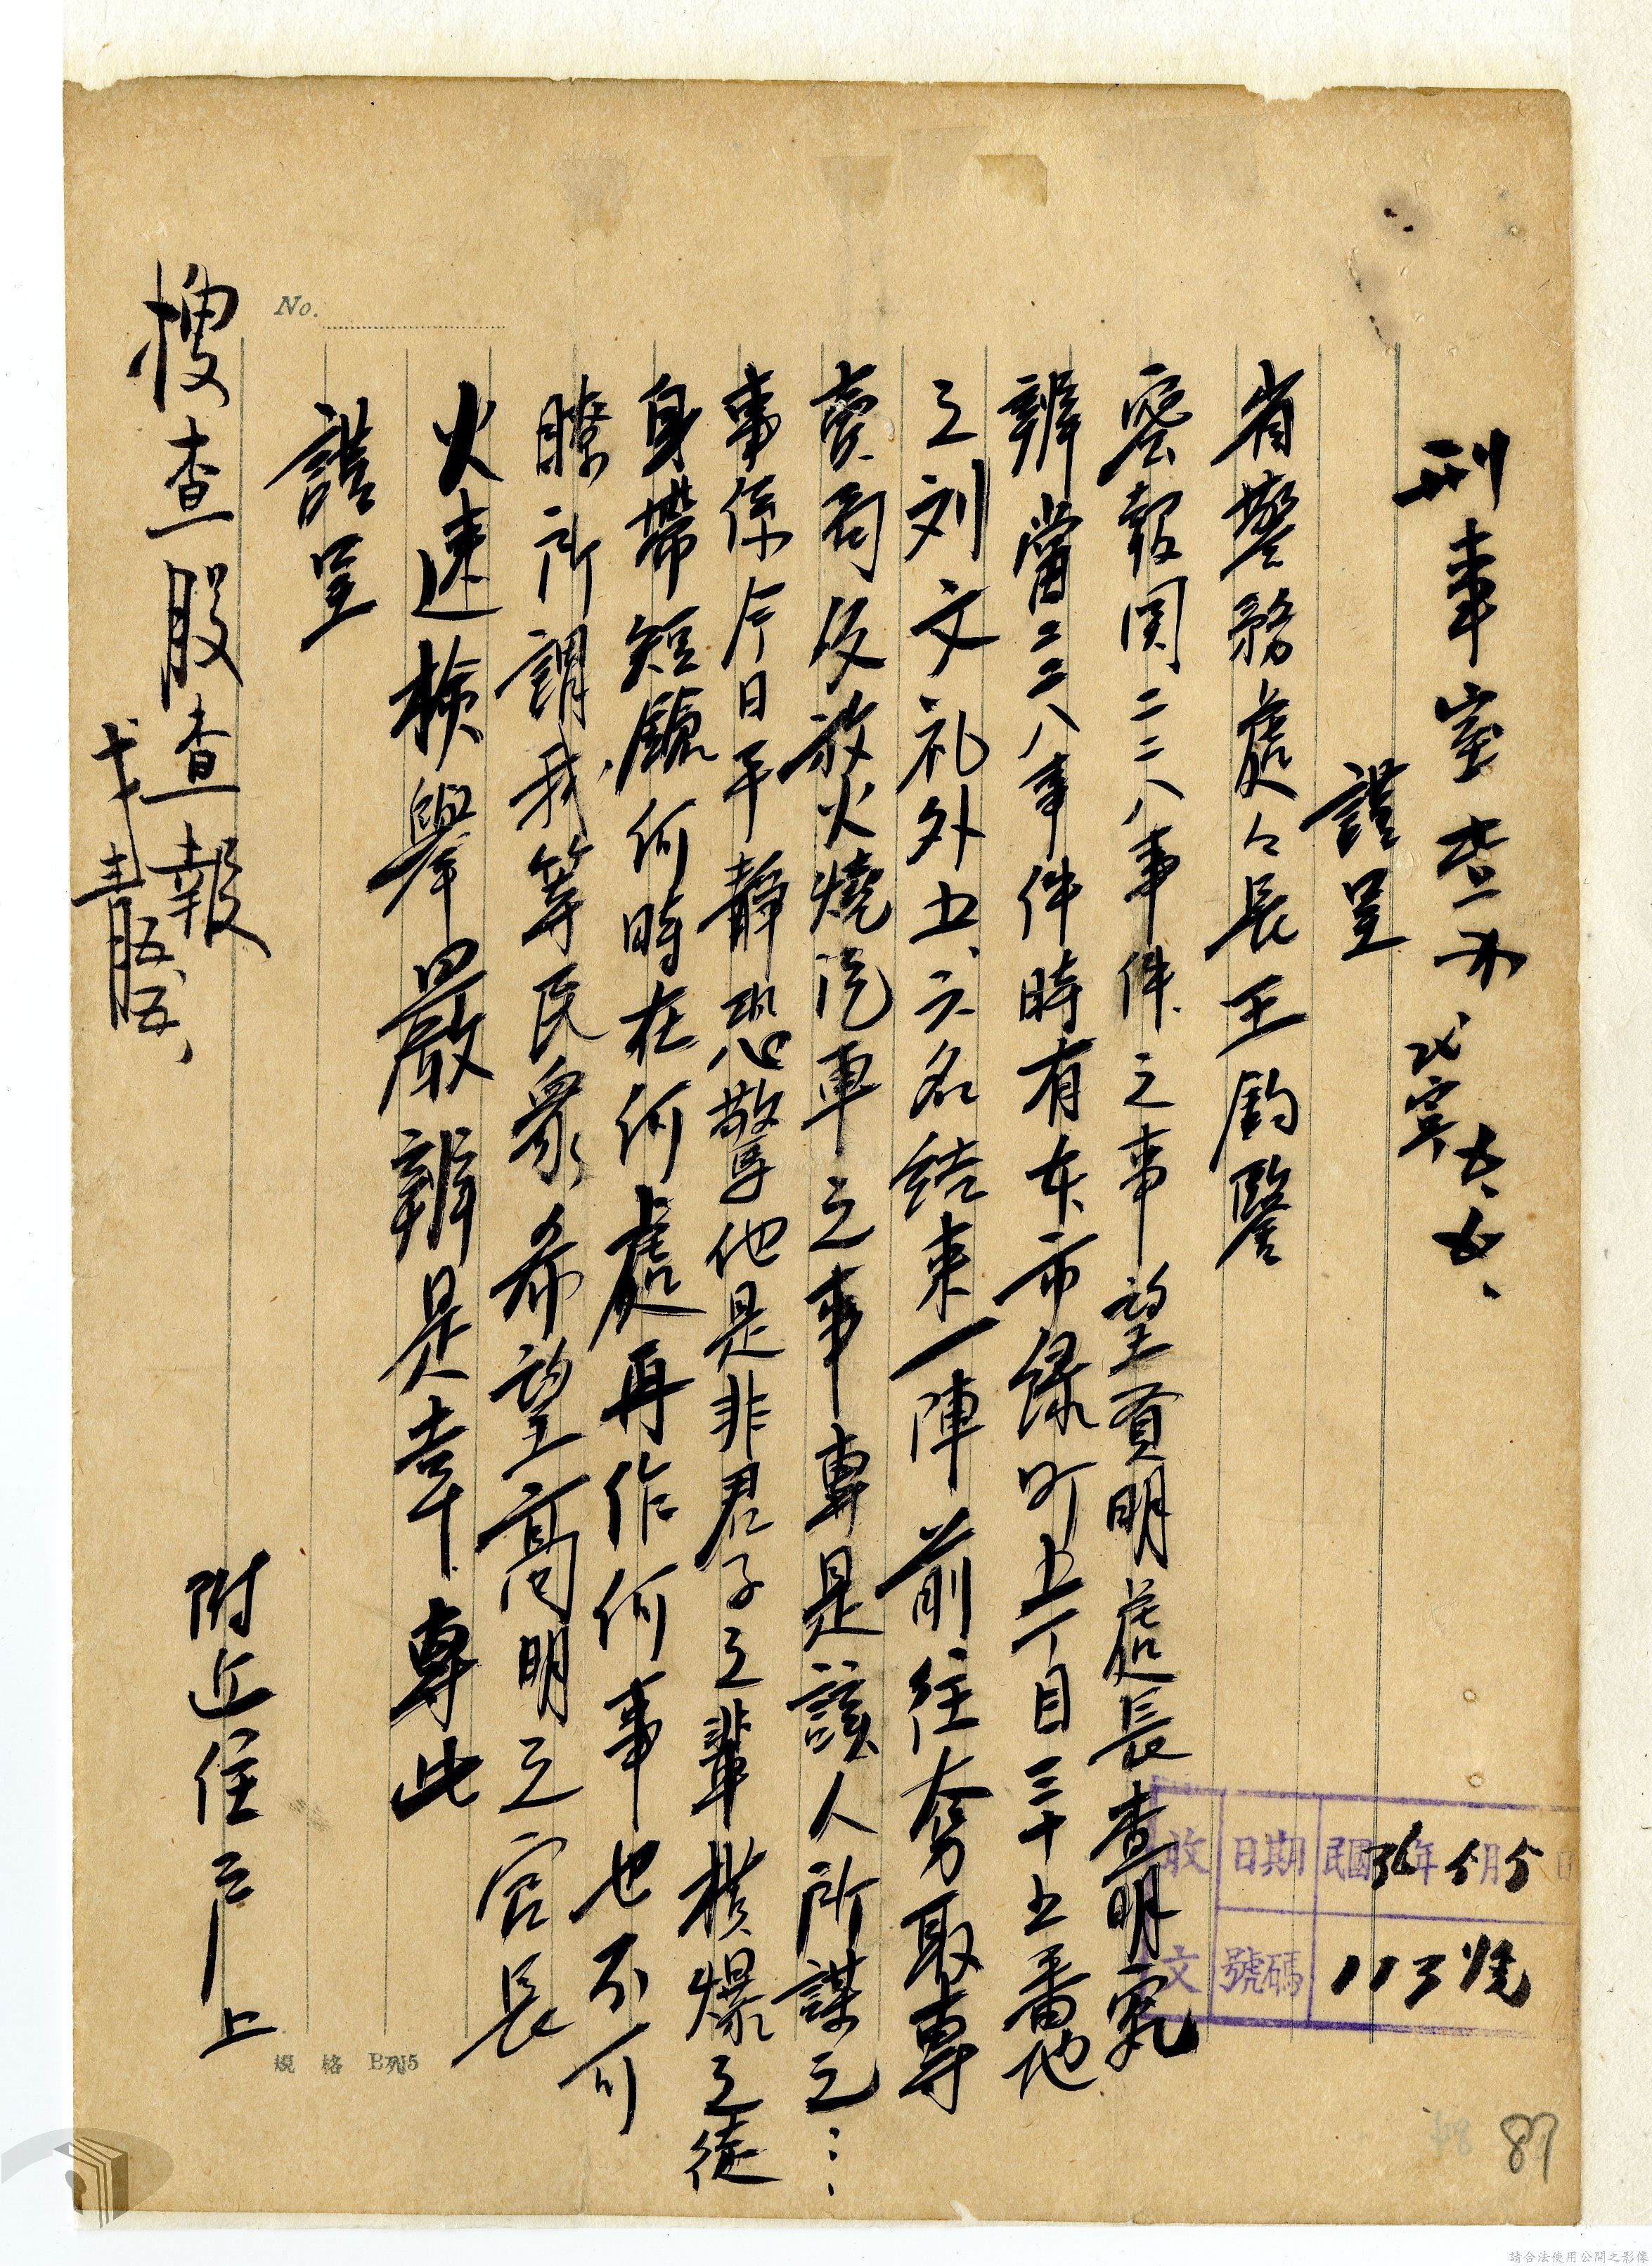 刑事室查办
五、五、
謹呈
省警務處々長王鈞鑒
密報関二二八事件之事望賢明處長查明究
辦當二二八事件時有本市綠町五丁目三十五番地
之刘文礼外五、六名結束一陣前往奪取專
賣局及放火燒汽車之事專是該人所謀之…
事係今日平靜恐驚他是非君子之輩橫爆之徒
身帶短鎗何時在何處再作何事也不可
瞭所謂我等民衆希望高明之官長
火速檢舉嚴辦是幸專此
謹呈
附近住戶上
搜查股查報
五、五、
收文
日期 民國36年5月5日
號碼 113號
No.
規格 B列5
87
請合法使用公開之影像